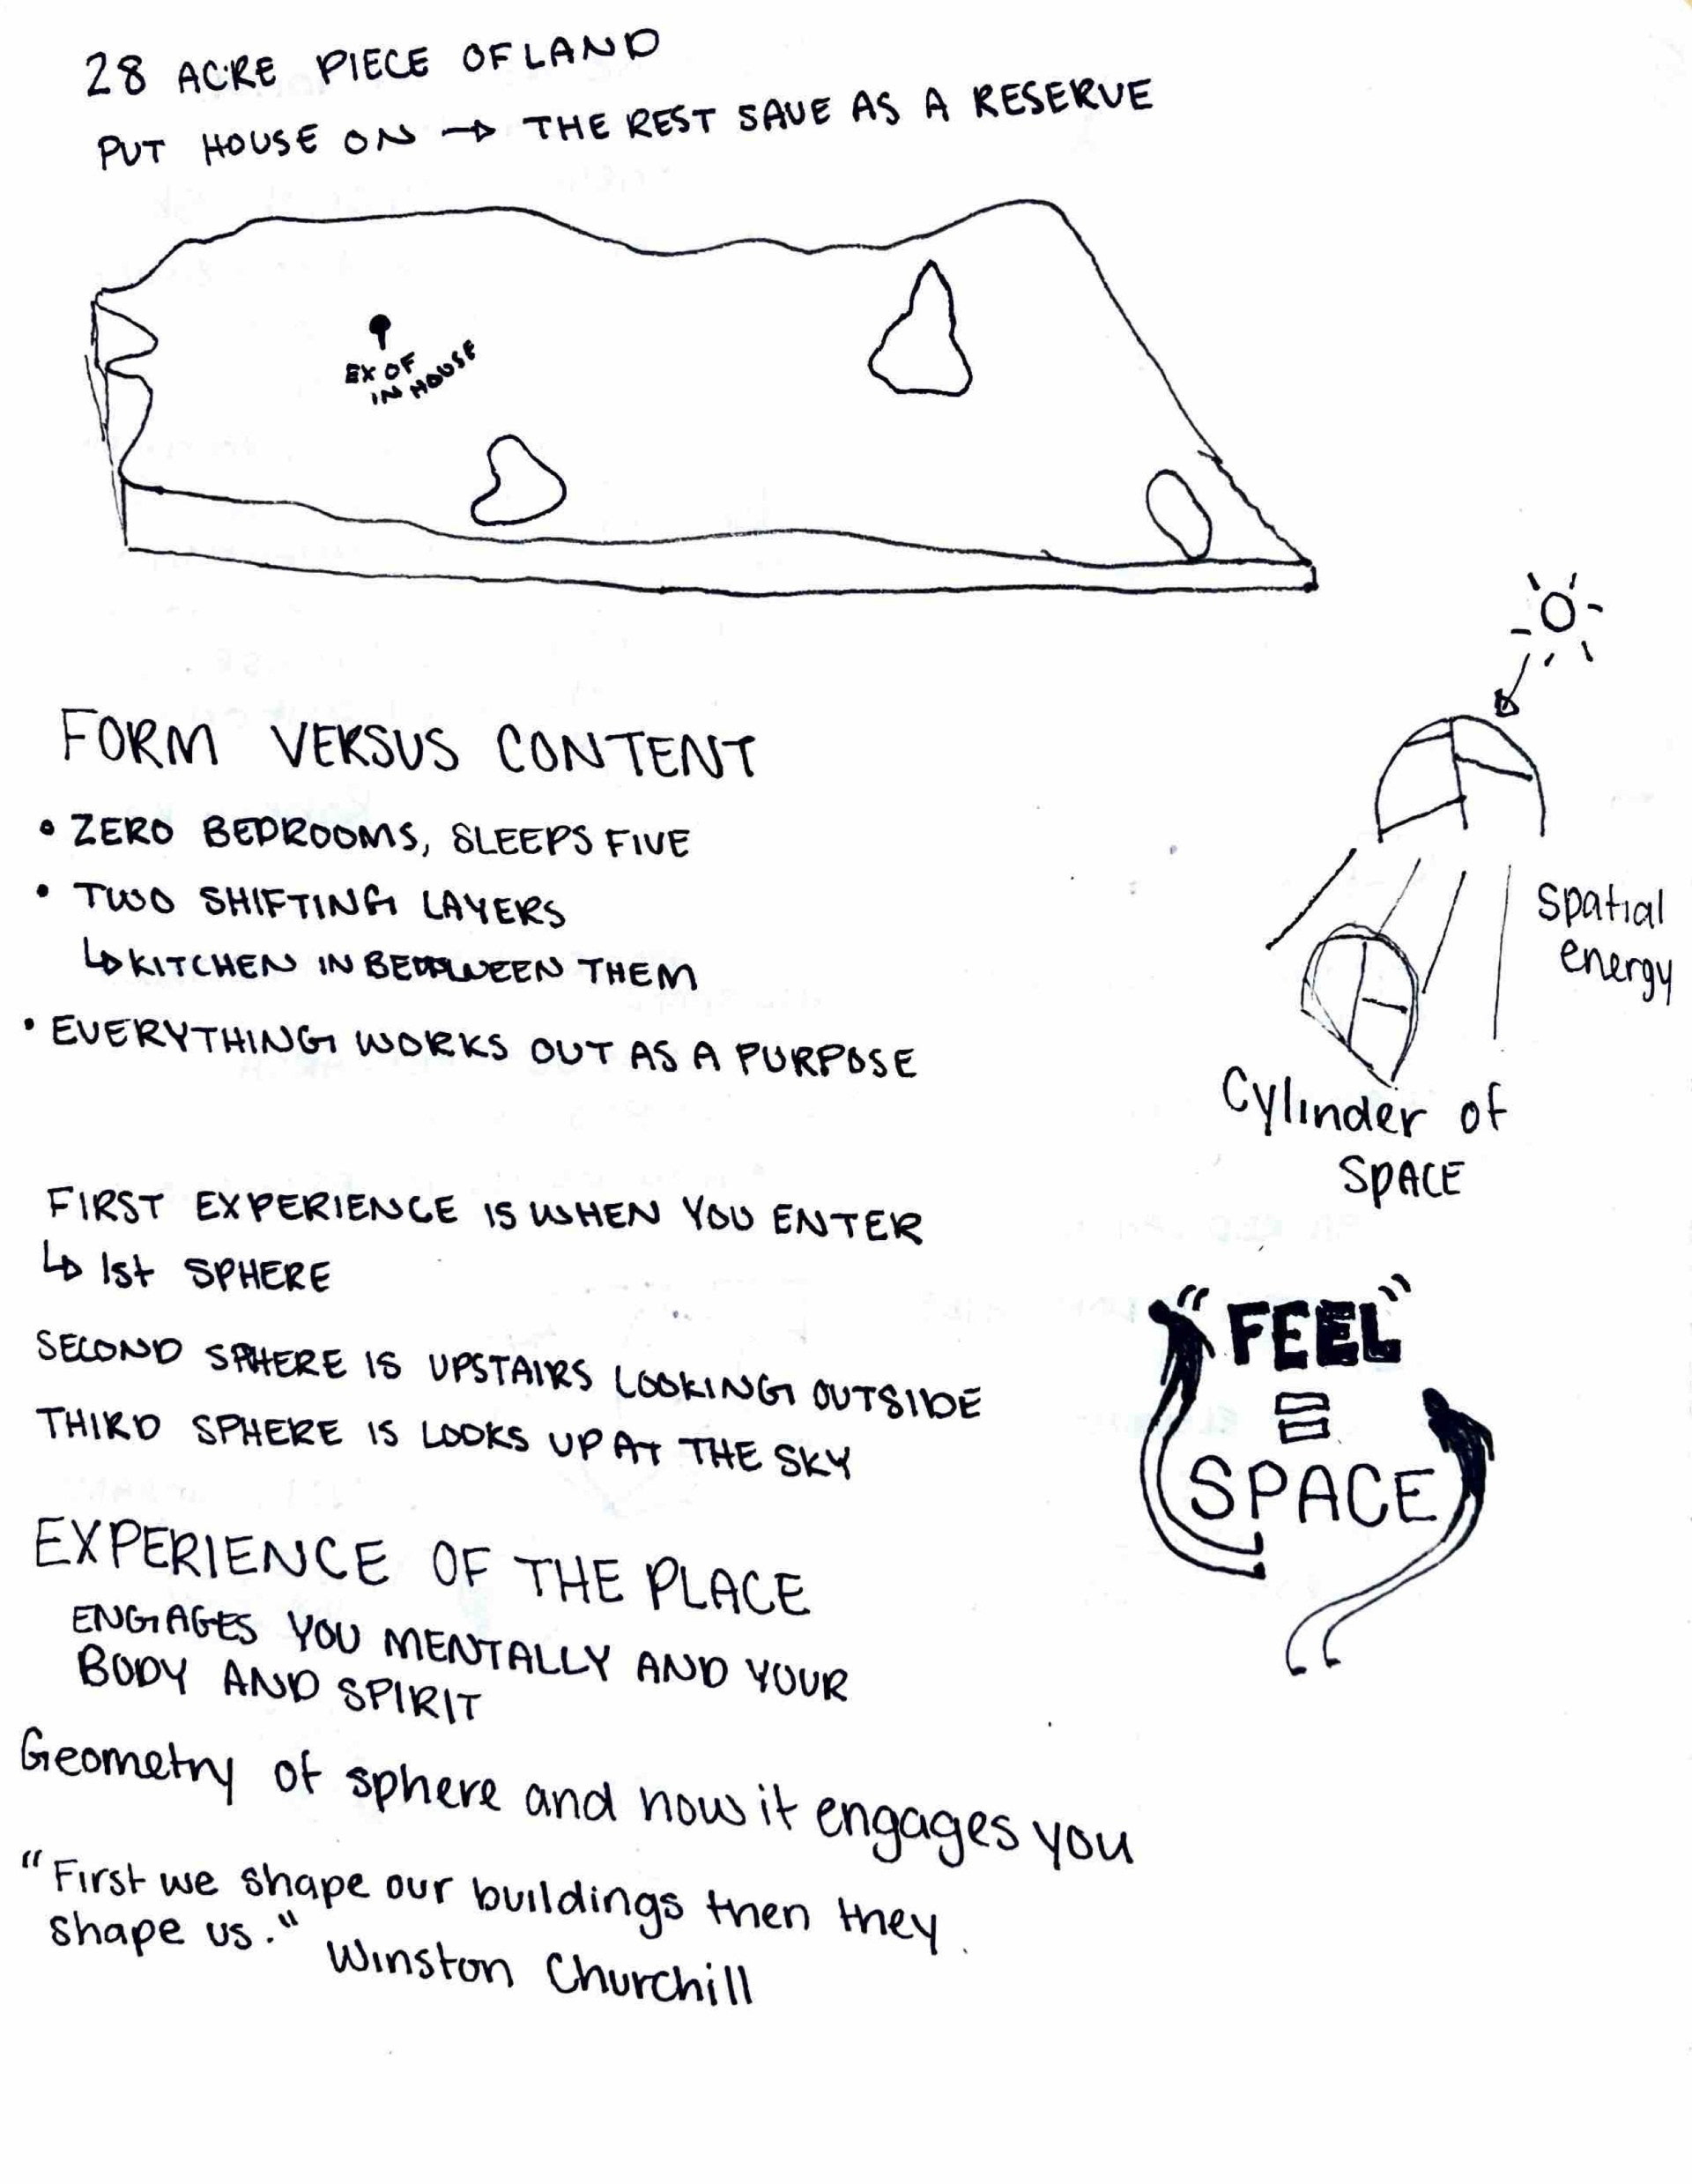 28 ACRE PIECE OF LAND
PUT HOUSE ON → THE REST SAVE AS A RESERVE
EX OF
IN HOUSE
FORM VERSUS CONTENT
• ZERO BEDROOMS, SLEEPS FIVE
• TWO SHIFTING LAYERS
↳ KITCHEN IN BETWEEN THEM
• EVERYTHING WORKS OUT AS A PURPOSE
Spatial
energy
Cylinder of
SPACE
FIRST EXPERIENCE IS WHEN YOU ENTER
↳ 1st SPHERE
SECOND SPHERE IS UPSTAIRS LOOKING OUTSIDE
THIRD SPHERE IS LOOKS UP AT THE SKY
"FEEL"
=
SPACE
EXPERIENCE OF THE PLACE
ENGAGES YOU MENTALLY AND YOUR
BODY AND SPIRIT
Geometry of sphere and how it engages you
"First we shape our buildings then they
shape us."
Winston Churchill